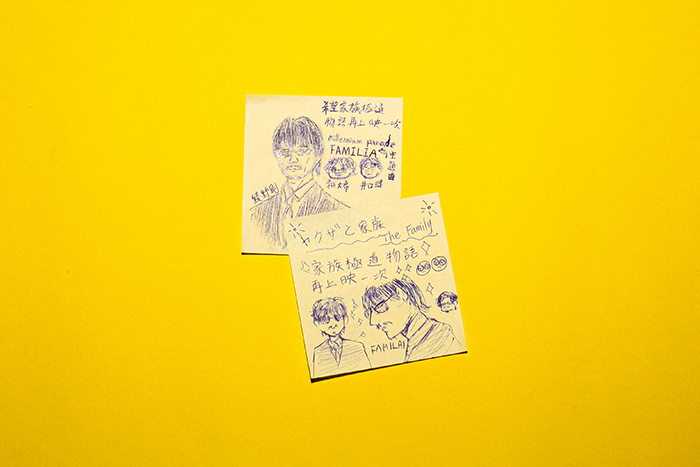 希望家族極道
物語再上映一次
millennium parade
FAMILIA
主題曲
和大希
井口理
綾野剛
ヤクザと家族
The Family
家族極道物語
再上映一次
FAMILAI